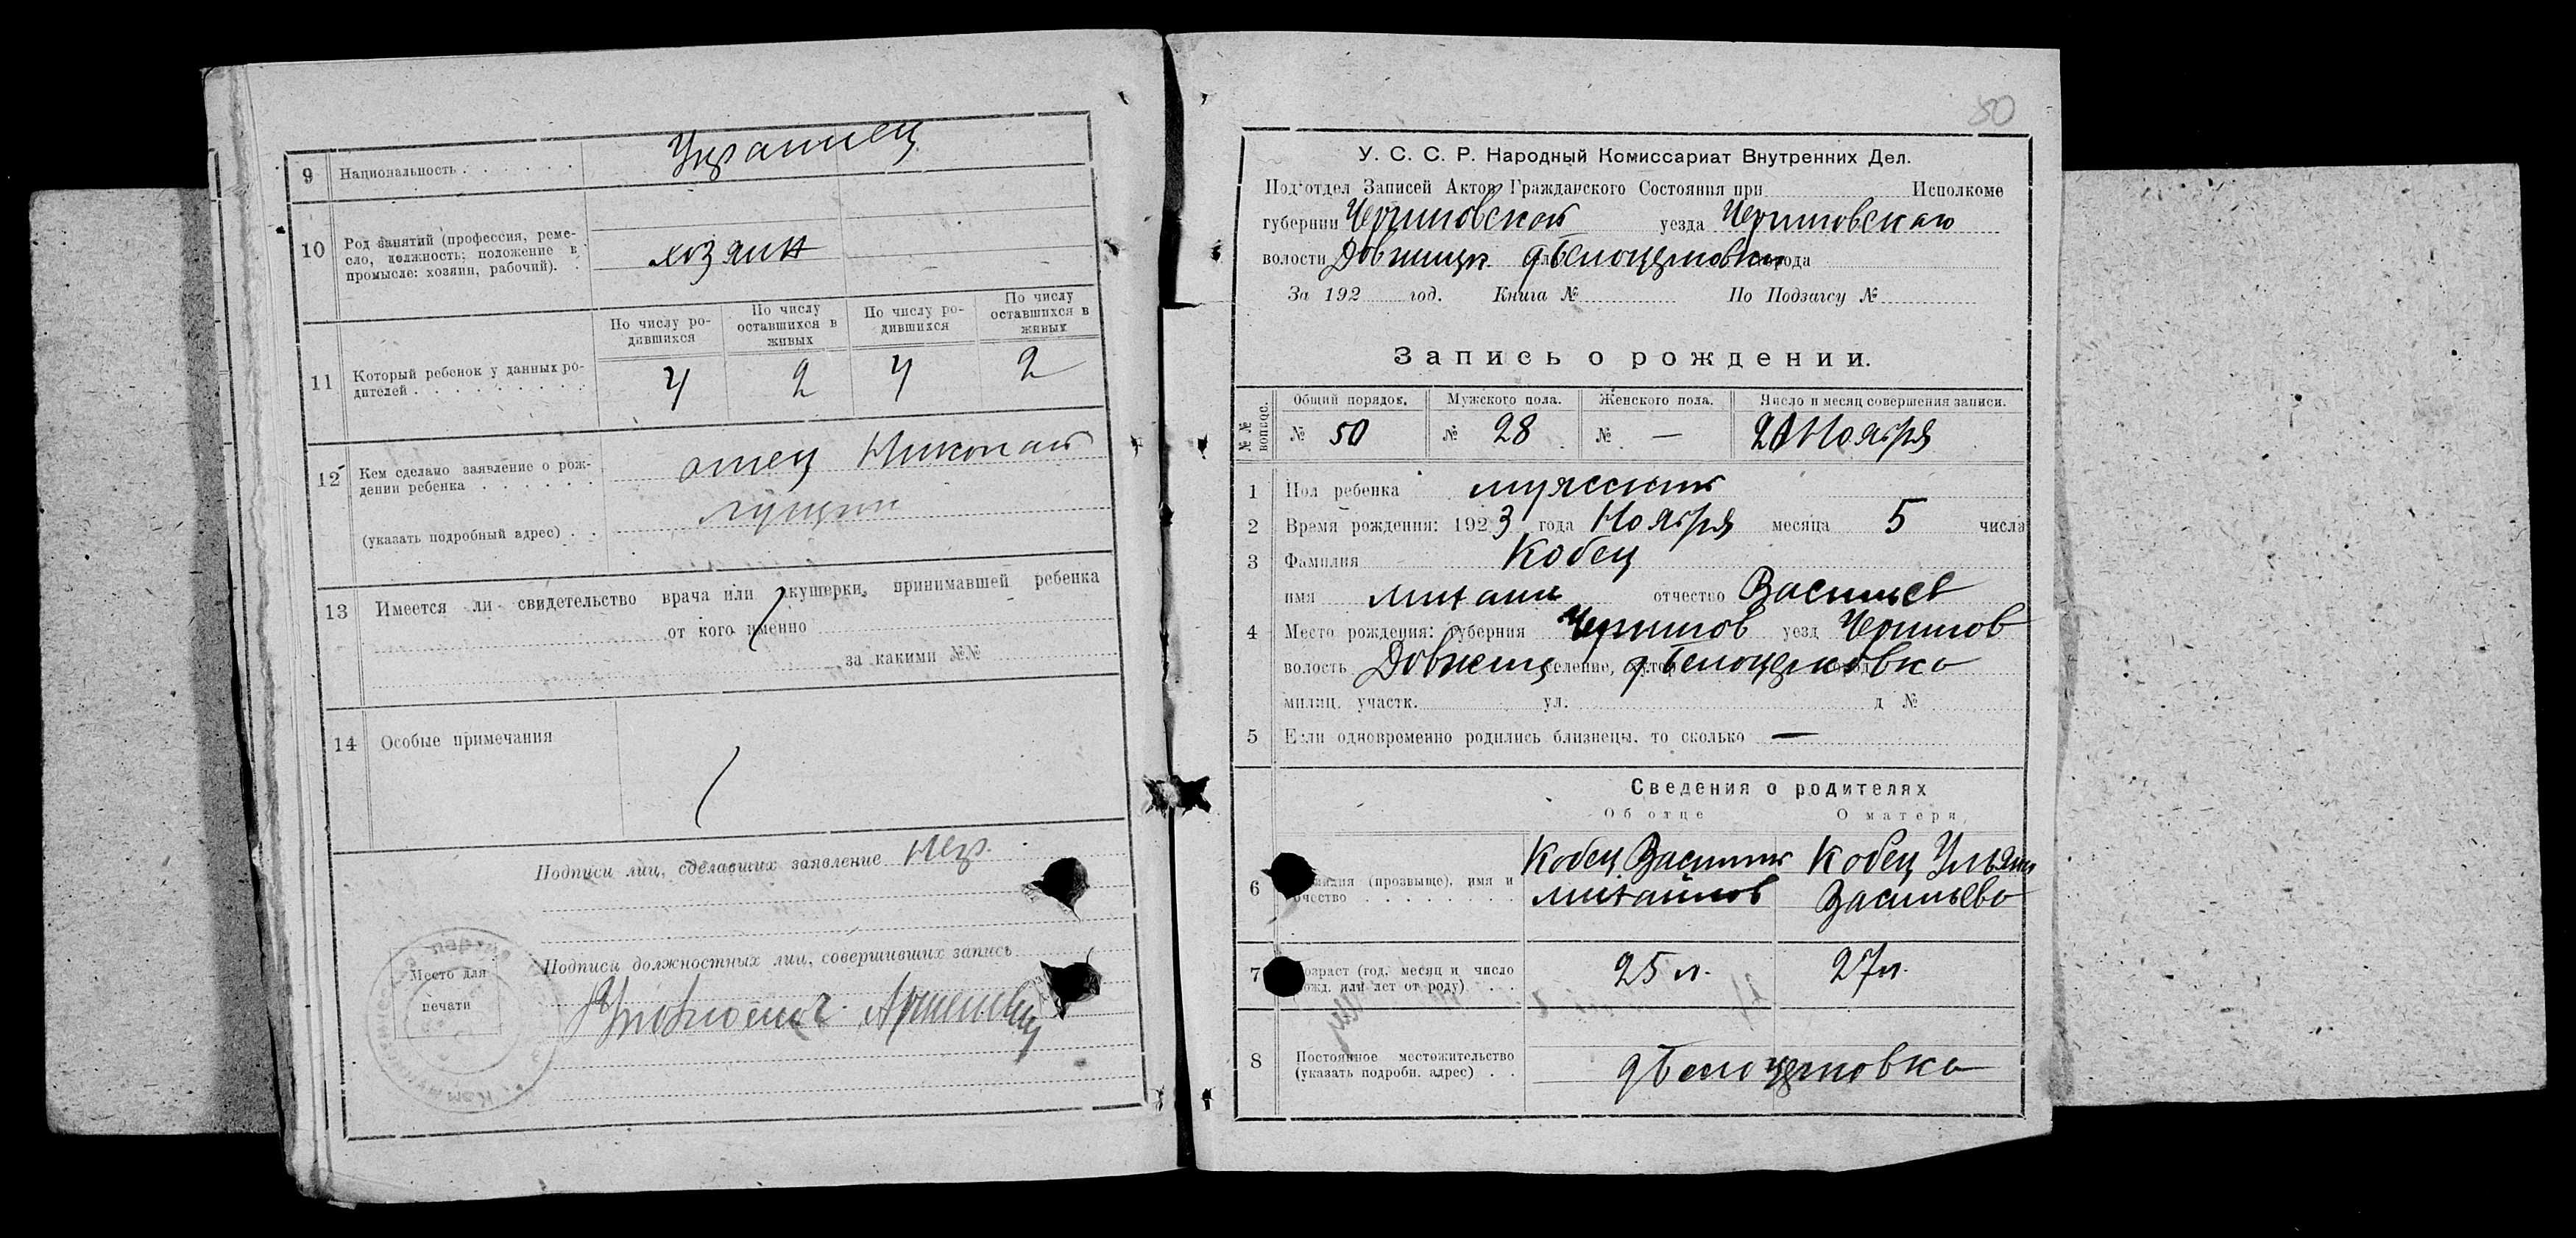 9 Национальность . . . . . . Украинец
10 Род занятий (профессия, реме-
сло, должность; положение в
промысле: хозяин, рабочий). . хозяин
По числу ро-
дившихся
По числу
оставшихся в
живых
По числу ро-
дившихся
По числу
оставшихся в
живых
11 Который ребенок у данных ро-
дителей . . . . . . . . 4 2 4 2
12 Кем сделано заявление о рож-
дении ребенка . . . . . . отец Николай
(указать подробный адрес) . .
13 Имеется ли свидетельство врача или акушерки, принимавшей ребенка
от кого именно
за какими №№
14 Особые примечания
Подписи лиц, сделавших заявление негр.
Подписи должностных лиц, совершивших запись
Место для
печати
50
У. С. С. Р. Народный Комиссариат Внутренних Дел.
Под'отдел Записей Актов Гражданского Состояния при Исполкоме
губернии Черниговской уезда Черниговскаю
волости Довжицк д Белоцерковка города
За 192 год. Книга № По Подзагсу №
Запись о рождении.
№ №
вопрос.
Общий порядок. Мужского пола. Женского пола. Число и месяц совершения записи.
№ 50 № 28 № — 20 Ноября
1 Пол ребенка мужский
2 Время рождения: 1923 года Ноября месяца 5 числа
3 Фамилия Кобец
имя Михаил отчество Васильев
4 Место рождения: губерния Чернигов уезд Чернигов
волость Довжицк селение, д Белоцерковка
милиц. участк. ул. д №
5 Если одновременно родились близнецы, то сколько —
Сведения о родителях
Об отце О матери
Кобец Василий Кобец Ульяна
6 Фамилия (прозвыще), имя и
отчество . . . . . . . . Михайлов Васильева
7 Возраст (год, месяц и число
рожд. или лет от роду) . . . 25 л. 27 л.
8 Постоянное местожительство
(указать подробн. адрес) . . д Белоцерковка